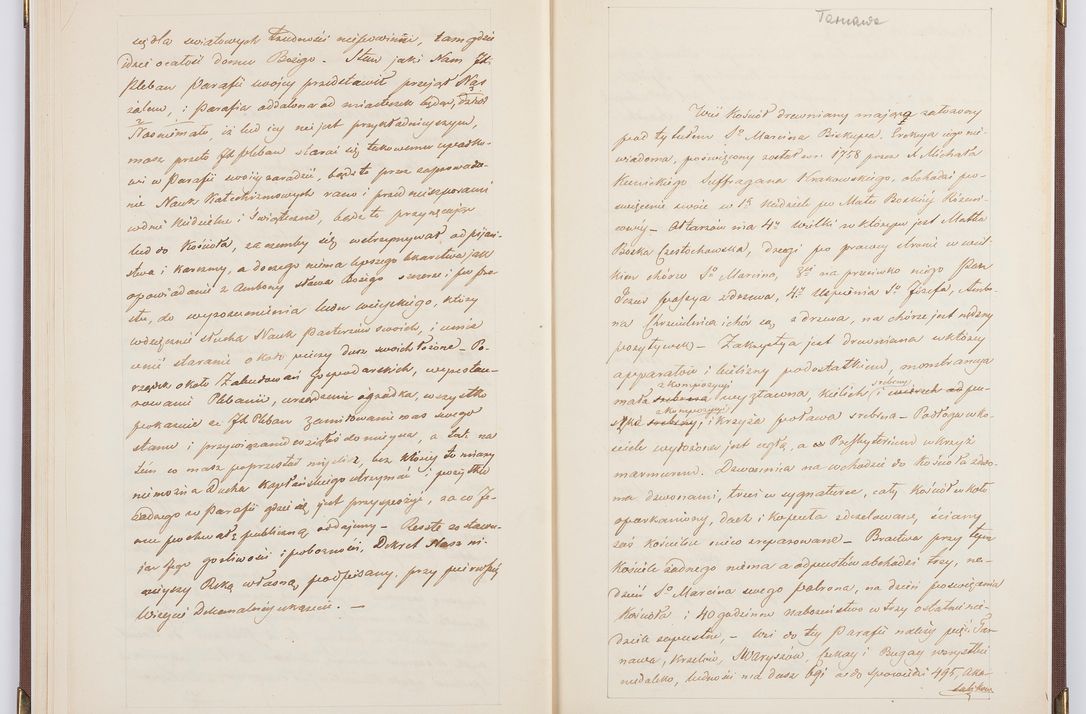 się dla światowych trudności nieświnić, tam gdzie
idzie o całość domu Bożego. Stan jaki Nam Jks:
Pleban Parafii swojey przedstawił przejął Nas
żalem, i Parafia oddalona od miasteczek będąc, dziwi
Nas niemało, iż lud jey nie jest przykładnieyszym,
masz przeto Jks Pleban starać się takowemu upadko-
wi w Parafii swojey zaradzić, bądź to przez zaprowadze-
nie Nauk Katechizmowych rano i przed nieszporami
w dnie Niedzielne i Świąteczne, bądź to przynęcając
lud do Kościoła, zaczemby się wstrzymywał od pijań-
stwa i karczmy, a do czego niema lepszego lekarstwa jak
opowiadanie z Ambony słowa Bożego szczere i po pro-
stu, do wyrozumienia ludu wieyskiego, który
wdzięcznie słucha Nauk Pasterzów swoich, i umie
cenić staranie około pieczy dusz swoich łożone – Po-
rządek około Zabudowań Gospodarskich, wyrestau-
rowanie Plebanii, urządzenie ogródka, wszystko
pokazuie w Jks Pleban Zamiłowanie nas swego
stanu i przywiązanie wziąłeś do mieysca, a tak na
tém co masz poprzestać myślisz, bez któréy to miary
nie można Ducha Kapłańskiego utrzymać i pożytku
żadnego w Parafii gdzie się jest przysporzyć, za co Je-
mu pochwałę publiczną oddajemy – Resztę zostawu-
jąc Jego gorliwości i pobożności, Dekret Nasz ni-
nieyszy Ręką własną podpisany, przy pierwszéy
Wizycie Dekanalnéy okazać. —
Tarnawa
Wieś Kościół drewniany mająca założony
pod tytułem S⁰ Marcina Biskupa. Erekcya jego nie-
wiadoma, poświęcony został w r. 1758 przez X Michała
Kunickiego Suffragana Krakowskiego, obchodzi po-
święcenie swoie w 1ą Niedzielę po Matce Boskiéy Różań-
cowéy – Ołtarzów ma 4ry wielki w którym jest Matka
Boska Częstochowska, drugi po prawey stronie w wiel-
kim chórze S⁰ Marcina, 3ci na przeciwko niego Pan
Jezus passya z drzewa, 4ty Uspienia S⁰ Józefa, Ambo-
na Chrzcielnica i chór są z drzewa, na chórze jest nędzny
pozytywek – Zakrystya jest drewniana w którey
apparatów i bielizny podostatkiem, monstrancya
z kompozycyi srebrny
mała srebrna i wyzłacana, kielich i wierzch od pu-
z kompozycyi
szki srebrny, i krzyża połowa srebrna – Podłoga w ko-
ściele wyłożona jest cegłą, a w Presbyterium w krzyż
marmurem. Dzwonnica na wchodzie do Kościoła z dwo-
ma dzwonami, trzeci w sygnaturce, cały Kościół w koło
oparkaniony, dach i kopuła zdezelowane, ściany
zaś kościelne nieco zreparowane – Bractwa przy tym
Kościele żadnego niema a odpustów obchodzi trzy, na-
dzień S⁰ Marcina swego patrona, na dzień poświęcania
Kościoła i 40 godzinne nabożeństwo w trzy ostatnie nie-
dziele zapustne, – Wsi do tey Parafii należy pięć: Tar-
nawa, Krzelów, Mstyszów, Czekay i Bugay wszystkie
niedaleko, ludności ma dusz 691 a do spowiedzi 495, Aka-
tolików